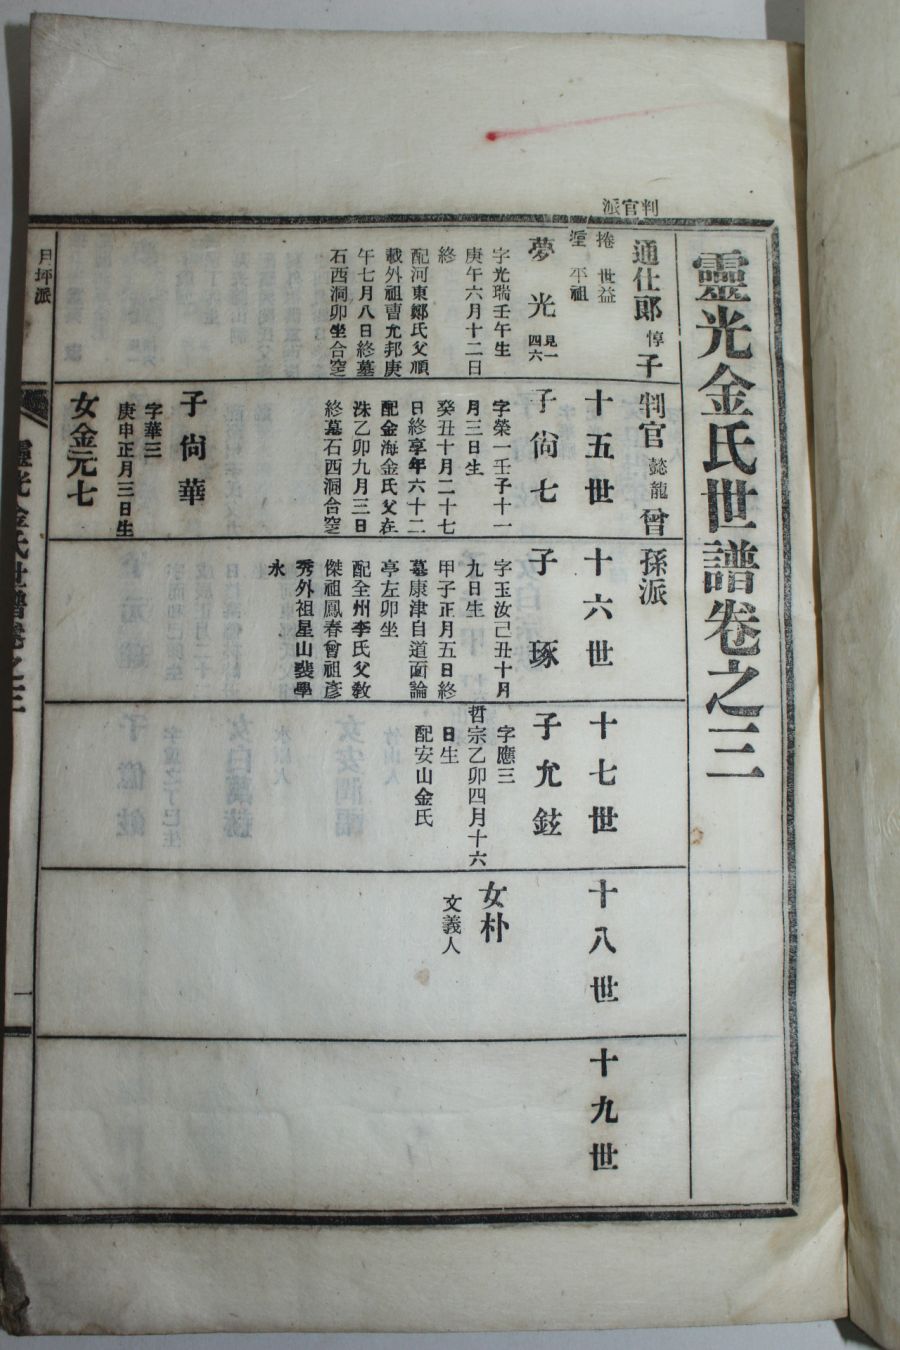 判官派
靈光金氏世譜卷之三
通仕郞 惇 子
判官 懿龍 曾
孫派
捲 世益
平祖
十五世
十六世
十七世
十八世
十九世
夢光 見一 四六
字光瑞壬午生
庚午六月十二日
終
配河東鄭氏父順
載外祖曺允邦庚
午七月八日終墓
石酉洞卯坐合窆
子尙七
字榮一壬子十一
月三日生
癸丑十月二十七
日終享年六十二
配金海金氏父在
洙乙卯九月三日
終墓石酉洞合窆
子尙華
字華三
庚申正月三日生
女金元七
子琢
字玉汝己丑十月
九日生
甲子正月五日終
墓康津自道面論
亭左卯坐
配全州李氏父敎
傑祖鳳春曾祖彦
秀外祖星山裴學
永
子允鉉
字應三
哲宗乙卯四月十六
日生
配安山金氏
女朴
文義人
月坪派
靈光金氏世譜卷之三
一